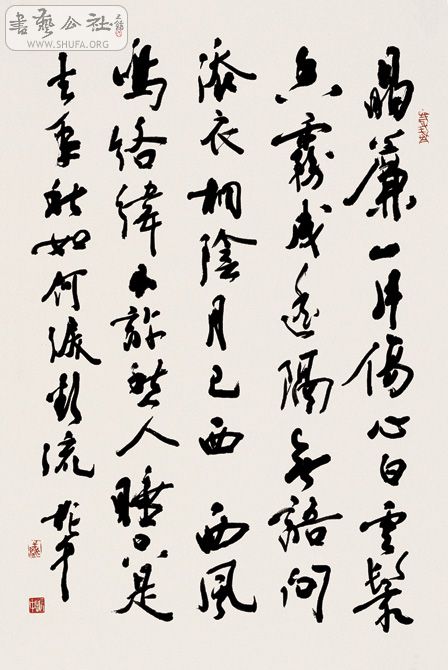 書藝公社
WWW.SHUFA.ORG
晶簾一片傷心白雲鬟
香霧成遙隔無語問
添衣桐陰月已西西風
鳴絡緯不許愁人睡只是
去年秋如何淚欲流